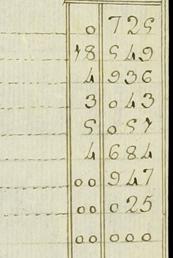 0 725
18 549
4 936
3 043
5 057
4 684
00 947
00 025
00 000